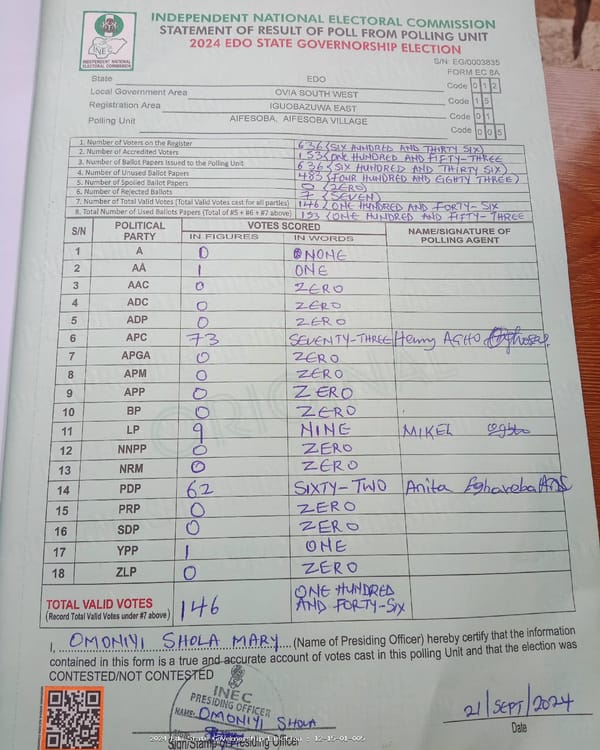 INDEPENDENT NATIONAL ELECTORAL COMMISSION
STATEMENT OF RESULT OF POLL FROM POLLING UNIT
2024 EDO STATE GOVERNORSHIP ELECTION
INEC
INDEPENDENT NATIONAL
ELECTORAL COMMISSION
S/N: EG/0003835
FORM EC 8A
State EDO Code 012
Local Government Area OVIA SOUTH WEST Code 15
Registration Area IGUOBAZUWA EAST Code 01
Polling Unit AIFESOBA, AIFESOBA VILLAGE Code 005
1. Number of Voters on the Register 636 (SIX HUNDRED AND THIRTY SIX)
2. Number of Accredited Voters 153 (ONE HUNDRED AND FIFTY-THREE
3. Number of Ballot Papers Issued to the Polling Unit 636 (SIX HUNDRED AND THIRTY SIX)
4. Number of Unused Ballot Papers 483 (FOUR HUNDRED AND EIGHTY THREE)
5. Number of Spoiled Ballot Papers 0 (ZERO)
6. Number of Rejected Ballots 7 (SEVEN)
7. Number of Total Valid Votes (Total Valid Votes cast for all parties) 146 (ONE HUNDRED AND FORTY-SIX
8. Total Number of Used Ballots Papers (Total of #5 + #6 + #7 above) 153 (ONE HUNDRED AND FIFTY-THREE
S/N POLITICAL PARTY VOTES SCORED NAME/SIGNATURE OF POLLING AGENT
IN FIGURES IN WORDS
1 A 0 NONE
2 AA 1 ONE
3 AAC 0 ZERO
4 ADC 0 ZERO
5 ADP 0 ZERO
6 APC 73 SEVENTY-THREE Henry AGHO
7 APGA 0 ZERO
8 APM 0 ZERO
9 APP 0 ZERO
10 BP 0 ZERO
11 LP 9 NINE MIKEL
12 NNPP 0 ZERO
13 NRM 0 ZERO
14 PDP 62 SIXTY-TWO Anita Eghareba
15 PRP 0 ZERO
16 SDP 0 ZERO
17 YPP 1 ONE
18 ZLP 0 ZERO
ORIGINAL
TOTAL VALID VOTES 146 ONE HUNDRED
(Record Total Valid Votes under #7 above) AND FORTY-SIX
I, OMONIYI SHOLA MARY (Name of Presiding Officer) hereby certify that the information
contained in this form is a true and accurate account of votes cast in this polling Unit and that the election was
CONTESTED/NOT CONTESTED
INEC
PRESIDING OFFICER
NAME: OMONIYI SHOLA
21/SEPT/2024
Date
2024 Edo State Governorship Election : 12-15-01-005
Sign/Stamp of Presiding Officer